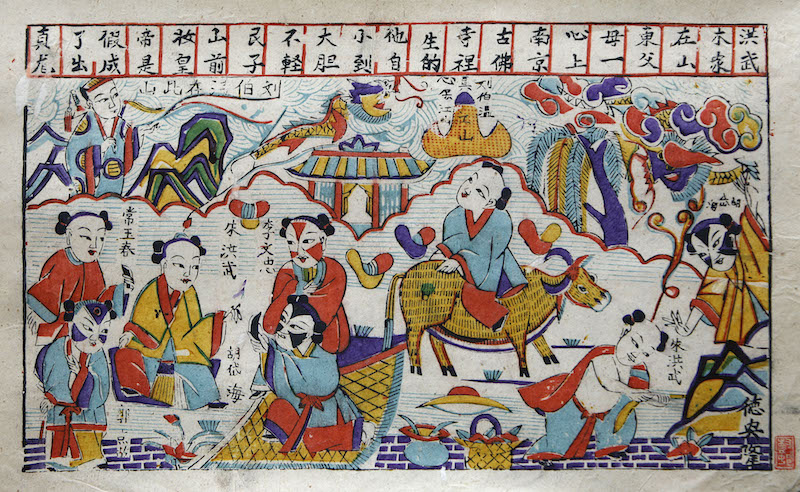 洪武木家在山東父母一心上南京古佛寺裡生的他自小到大胆不輕艮子山前妝皇帝是假成了出真龙
刘伯温在此山
刘伯温
山
胡
李文忠
朱洪武
常王春
胡岱海
郭
朱洪武
德